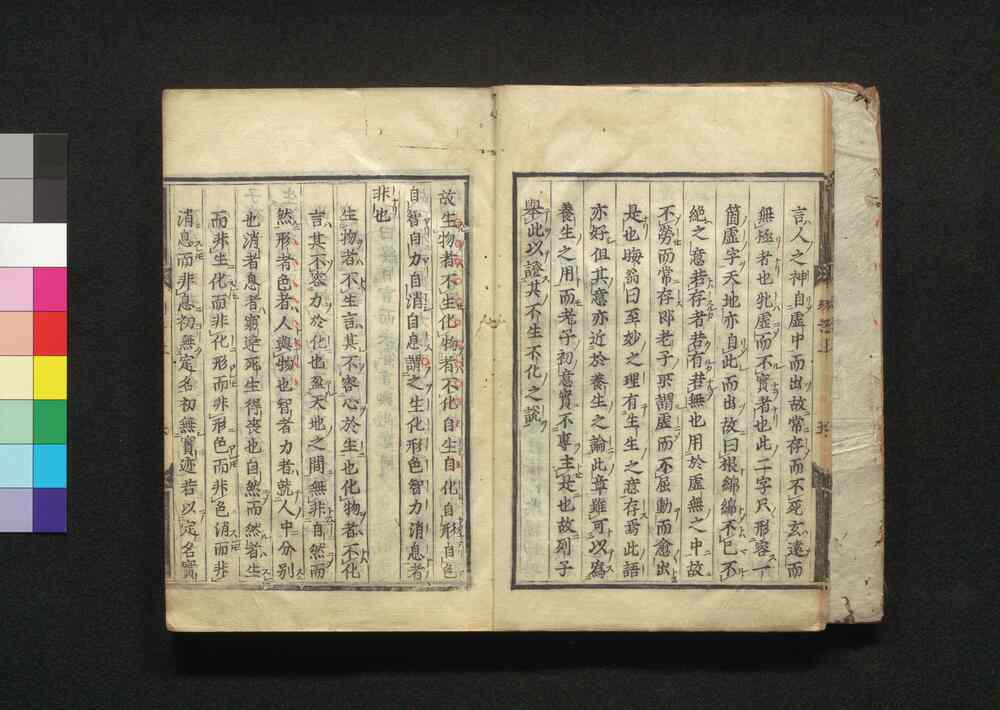 言人之神自虛中而出故常存而不死玄遠而
無極者也牝虛而不實者也此二字只形容一
箇虛字天地亦自此而出故曰根綿綿不已不
絕之意若存者若有若無也用於虛無之中故
不勞而常存即老子所謂虛而不屈動而愈出
是也晦翁曰至妙之理有生生之意存焉此語
亦好但其意亦近於養生之論此章雖可以寫
養生之用而老子初意實不專主是也故列子
舉此以證其不生不化之說
故生物者不生化物者不化自生自化自形自色
自智自力自消自息謂之生化形色智力消息者
非也
生物者不生言其不容心於生也化物者不化
言其不容力於化也盈天地之間無非自然而
然形者色者人與物也智者力者就人中分別
也消者息者窮達死生得喪也自然而然者生
而非生化而非化形而非形色而非色消而非
消息而非息初無定名初無實迹若以定名實